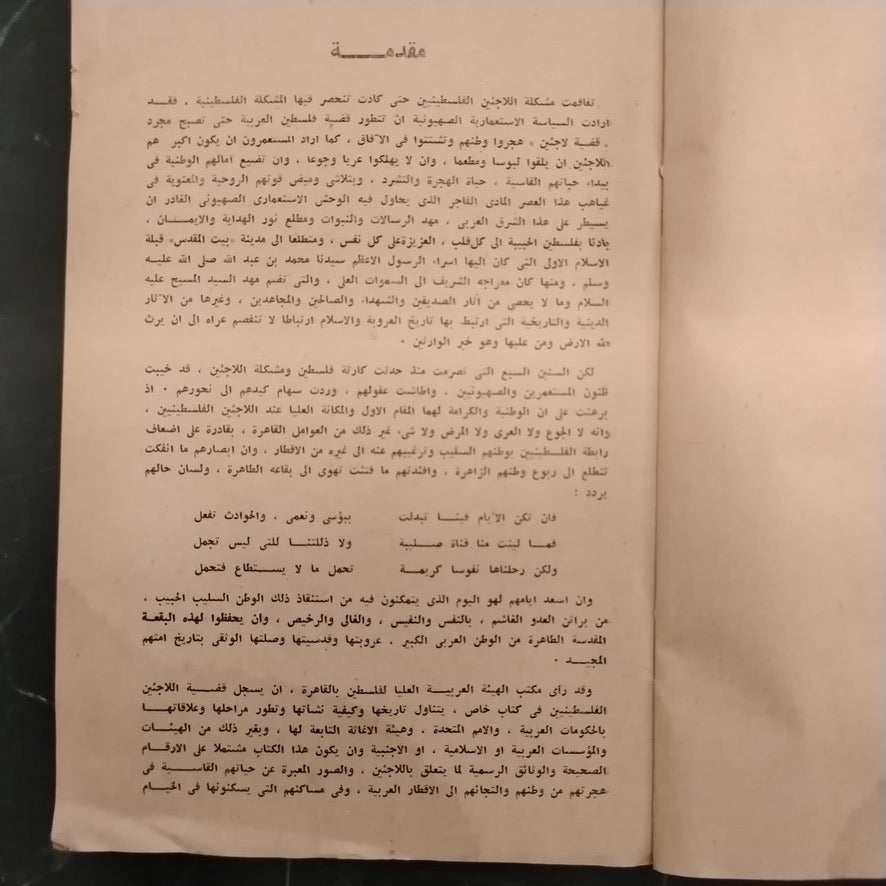 مقدمـــــة
تفاقمت مشكلة اللاجئين الفلسطينيين حتى كادت تنحصر فيها المشكلة الفلسطينية ، فقـــد
ارادت السياسة الاستعمارية الصهيونية ان تتطور قضية فلسطين العربية حتى تصبح مجرد
، قضية لاجئين » هجروا وطنهم وتشتتوا فى الآفاق ، كما اراد المستعمرون ان يكون اكبر هم
اللاجئين ان يلقوا لبوسا ومطعما ، وان لا يهلكوا عريا وجوعا ، وان تضيع آمالهم الوطنية فى
بيداء حياتهم القاسية ، حياة الهجرة والتشرد ، ويتلاشى وميض قوتهم الروحية والمعنوية فى
غياهب هذا العصر المادى الفاجر الذى يحاول فيه الوحش الاستعمارى الصهيونى الغادر ان
يسيطر على هذا الشرق العربى ، مهد الرسالات والنبوات ومطلع نور الهداية والايمـــان ،
بادئا بفلسطين الحبيبة الى كل قلب ، العزيزة على كل نفس ، ومتطلعا الى مدينة «بيت المقدس» قبلة
الاسلام الاولى التى كان اليها اسراء الرسول الاعظم سيدنا محمد بن عبد الله صلى الله عليـــه
وسلم ، ومنها كان معراجه الشريف الى السموات العلى ، والتى تضم مهد السيد المسيح عليه
السلام وما لا يحصى من آثار الصديقين والشهداء والصالحين والمجاهدين ، وغيرها من الآثار
الدينية والتاريخية التى ارتبط بها تاريخ العروبة والاسلام ارتباطا لا تنفصم عراه الى ان يرث
الله الارض ومن عليها وهو خير الوارثين .
لكن السنين السبع التى تصرمت منذ حدثت كارثة فلسطين ومشكلة اللاجئين ، قد خيبت
ظنون المستعمرين والصهيونيين ، واطاشت عقولهم ، وردت سهام كيدهم الى نحورهم . اذ
برهنت على ان الوطنية والكرامة لهما المقام الاول والمكانة العليا عند اللاجئين الفلسطينيين ،
وانه لا الجوع ولا العرى ولا المرض ولا شىء غير ذلك من العوامل القاهرة ، بقادرة على اضعاف
رابطة الفلسطينيين بوطنهم السليب وترغيبهم عنه الى غيره من الاقطار ، وان ابصارهم ما انفكت
تتطلع الى ربوع وطنهم الزاهرة ، وافئدتهم ما فتئت تهوى الى بقاعه الطاهرة ، ولسان حالهم
يردد :
فان تكن الأيام فينـــا تبدلت ببؤسى ونعمى ، والحوادث تفعل
فمـــا لينت منا قناة صـــليبة ولا ذللتنـــا للتى ليس تجمل
ولكن رحلناها نفوسا كريمـــة تحمل ما لا يســـتطاع فتحمل
وان اسعد ايامهم لهو اليوم الذى يتمكنون فيه من استنقاذ ذلك الوطن السليب الحبيب ،
من براثن العدو الغاشم ، بالنفس والنفيس ، والغالى والرخيص ، وأن يحفظوا لهذه البقعة
المقدسة الطاهرة من الوطن العربى الكبير . عروبتها وقدسيتها وصلتها الوثقى بتاريخ امتهم
المجيـــد .
وقد رأى مكتب الهيئة العربيـــة العليا لفلسطين بالقاهرة ، ان يسجل قضـــية اللاجئين
الفلسطينيين فى كتاب خاص ، يتناول تاريخها وكيفية نشأتها وتطور مراحلها وعلاقاتهـــا
بالحكومات العربية ، والامم المتحدة ، وهيئة الاغاثة التابعة لها ، وبغير ذلك من الهيئـــات
والمؤسسات العربية او الاسلامية ، او الاجنبية وان يكون هذا الكتاب مشتملا على الارقام
الصحيحة والوثائق الرسمية لما يتعلق باللاجئين ، والصور المعبرة عن حياتهم القاســـية فى
هجرتهم من وطنهم والتجائهم الى الاقطار العربية ، وفى مساكنهم التى يسكنونها فى الخيام